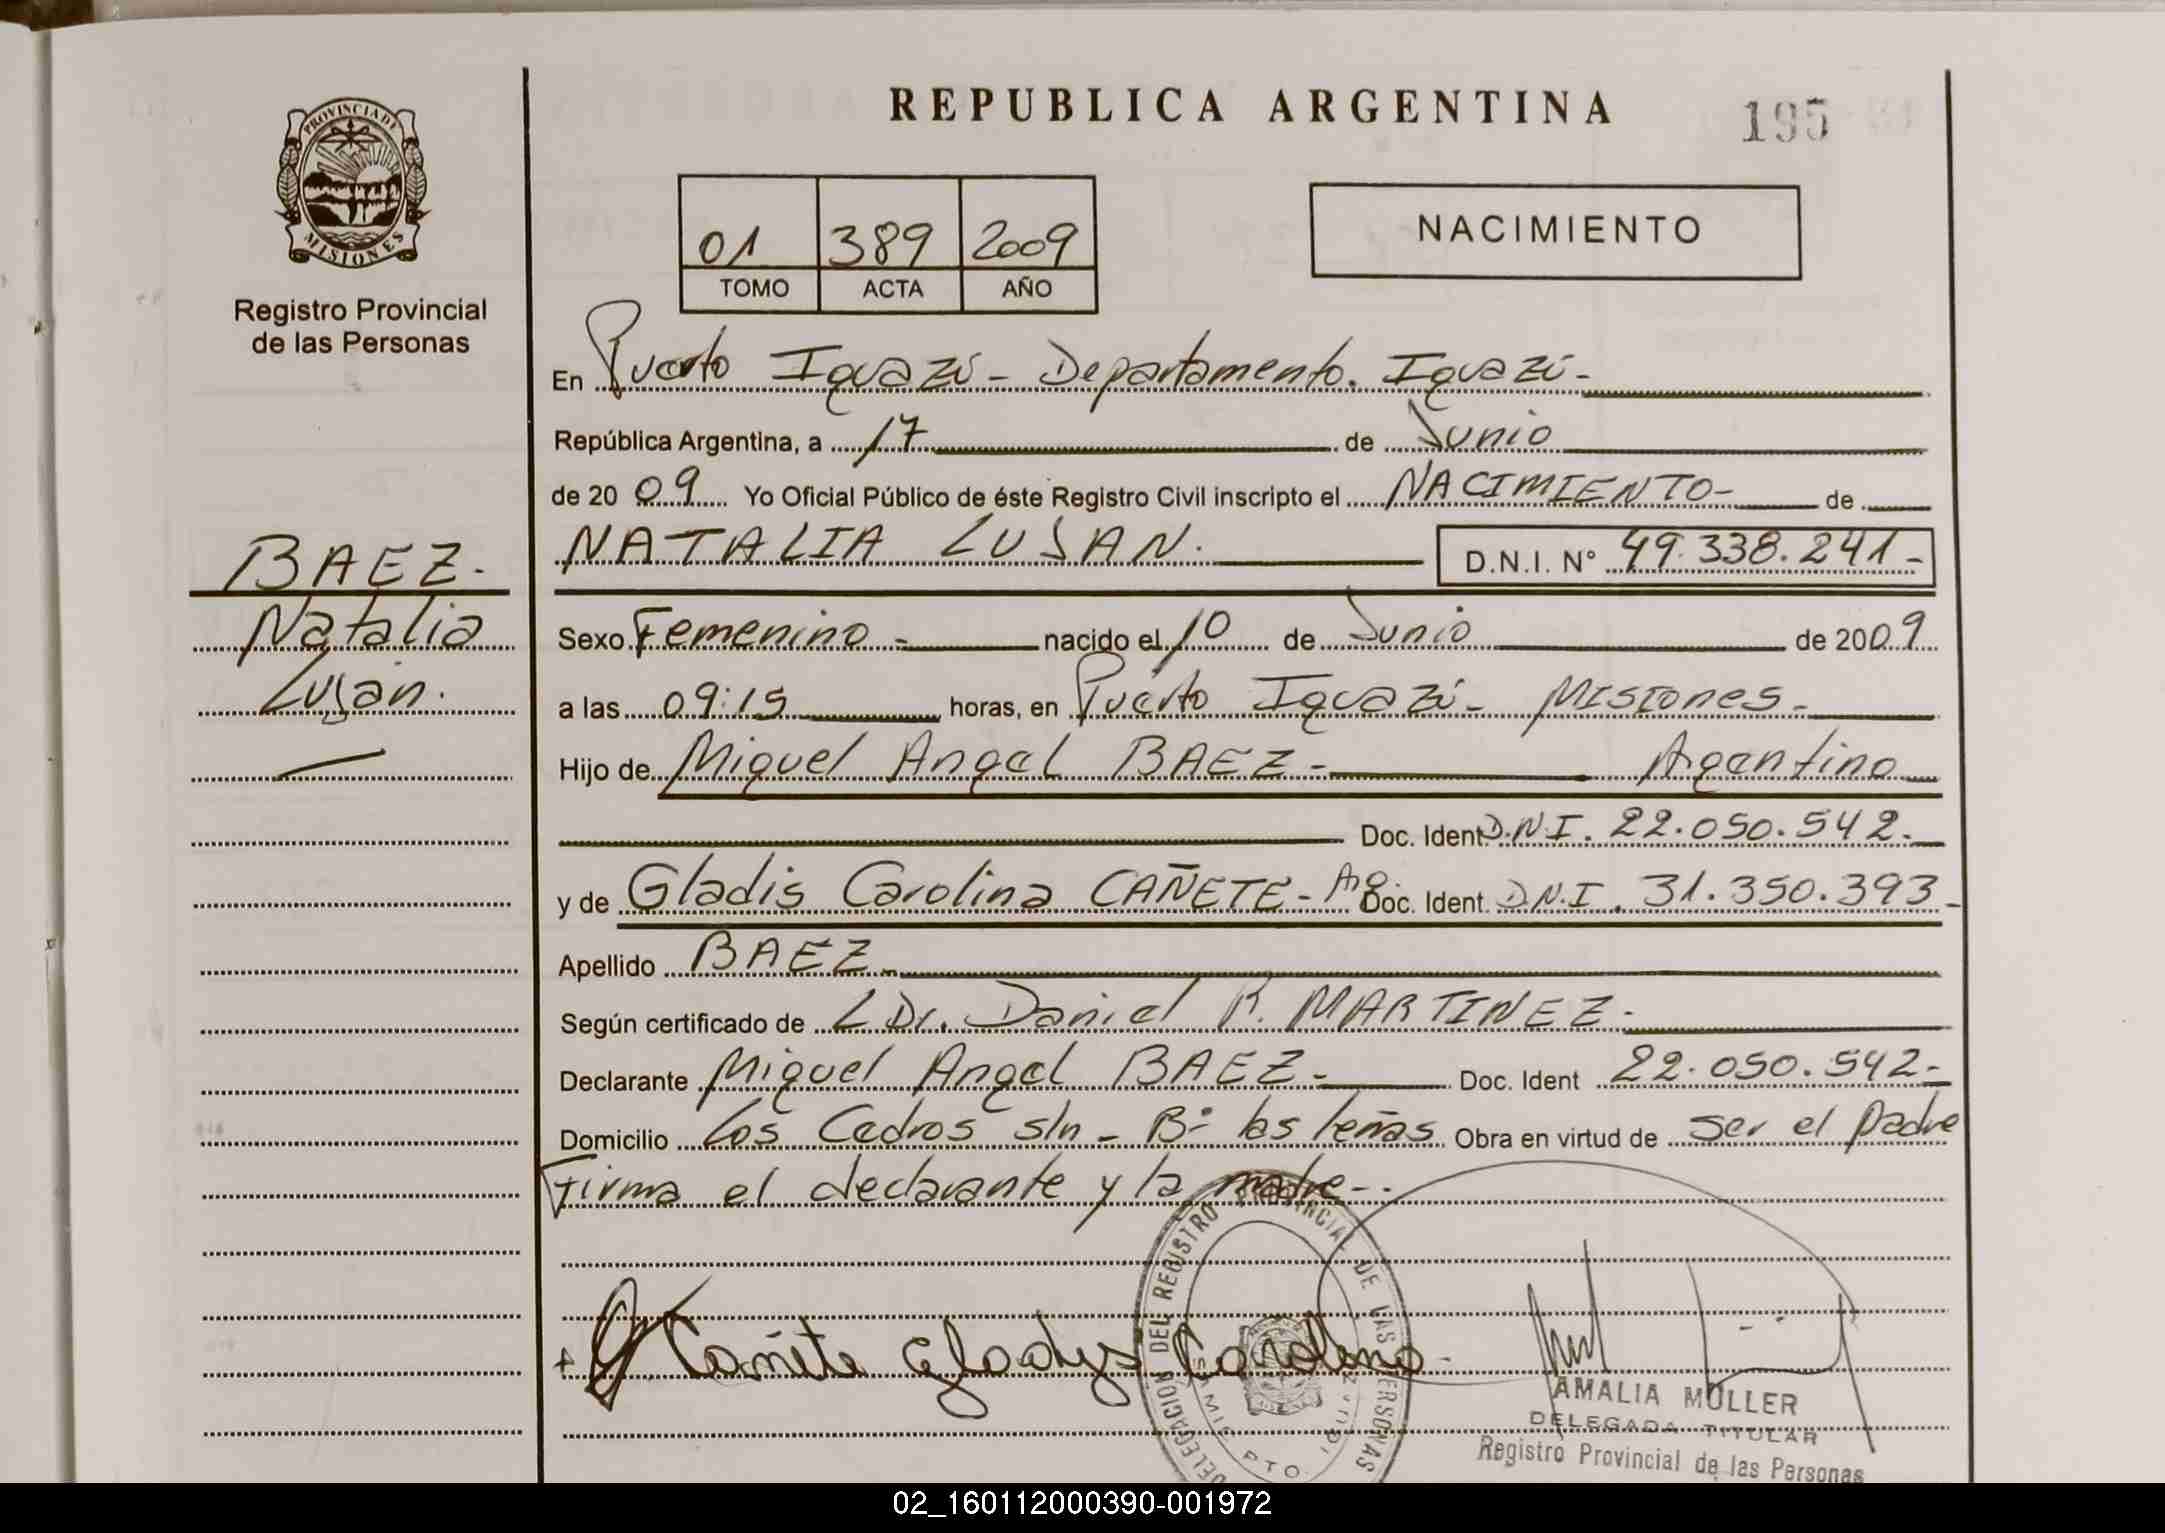 REPUBLICA ARGENTINA
195
PROVINCIA DE
MISIONES
Registro Provincial
de las Personas
01 389 2009
TOMO ACTA AÑO
NACIMIENTO
En Puerto Iguazú - Departamento. Iguazú -
República Argentina, a 17 de Junio
de 2009 Yo Oficial Público de éste Registro Civil inscripto el NACIMIENTO - de
NATALIA LUJAN. D.N.I. N° 49.338.241 -
BAEZ.-
Natalia
Luján.
Sexo Femenino - nacido el 10 de Junio de 2009
a las 09:15 horas, en Puerto Iguazú - Misiones -
Hijo de Miguel Angel BAEZ - Argentino
Doc. Ident. D.N.I. 22.050.542.-
y de Gladis Carolina CAÑETE - Arg Doc. Ident. D.N.I. 31.350.393 -
Apellido BAEZ -
Según certificado de L Dr. Daniel R. MARTINEZ.-
Declarante Miguel Angel BAEZ - Doc. Ident 22.050.542.-
Domicilio Los Cedros s/n - B° las leñas Obra en virtud de ser el padre
Firma el declarante y la madre -.
Cañete Gladys Carolina
DELEGACION DEL REGISTRO PROVINCIAL DE LAS PERSONAS
PTO.
AMALIA MULLER
DELEGADA TITULAR
Registro Provincial de las Personas
02_160112000390-001972